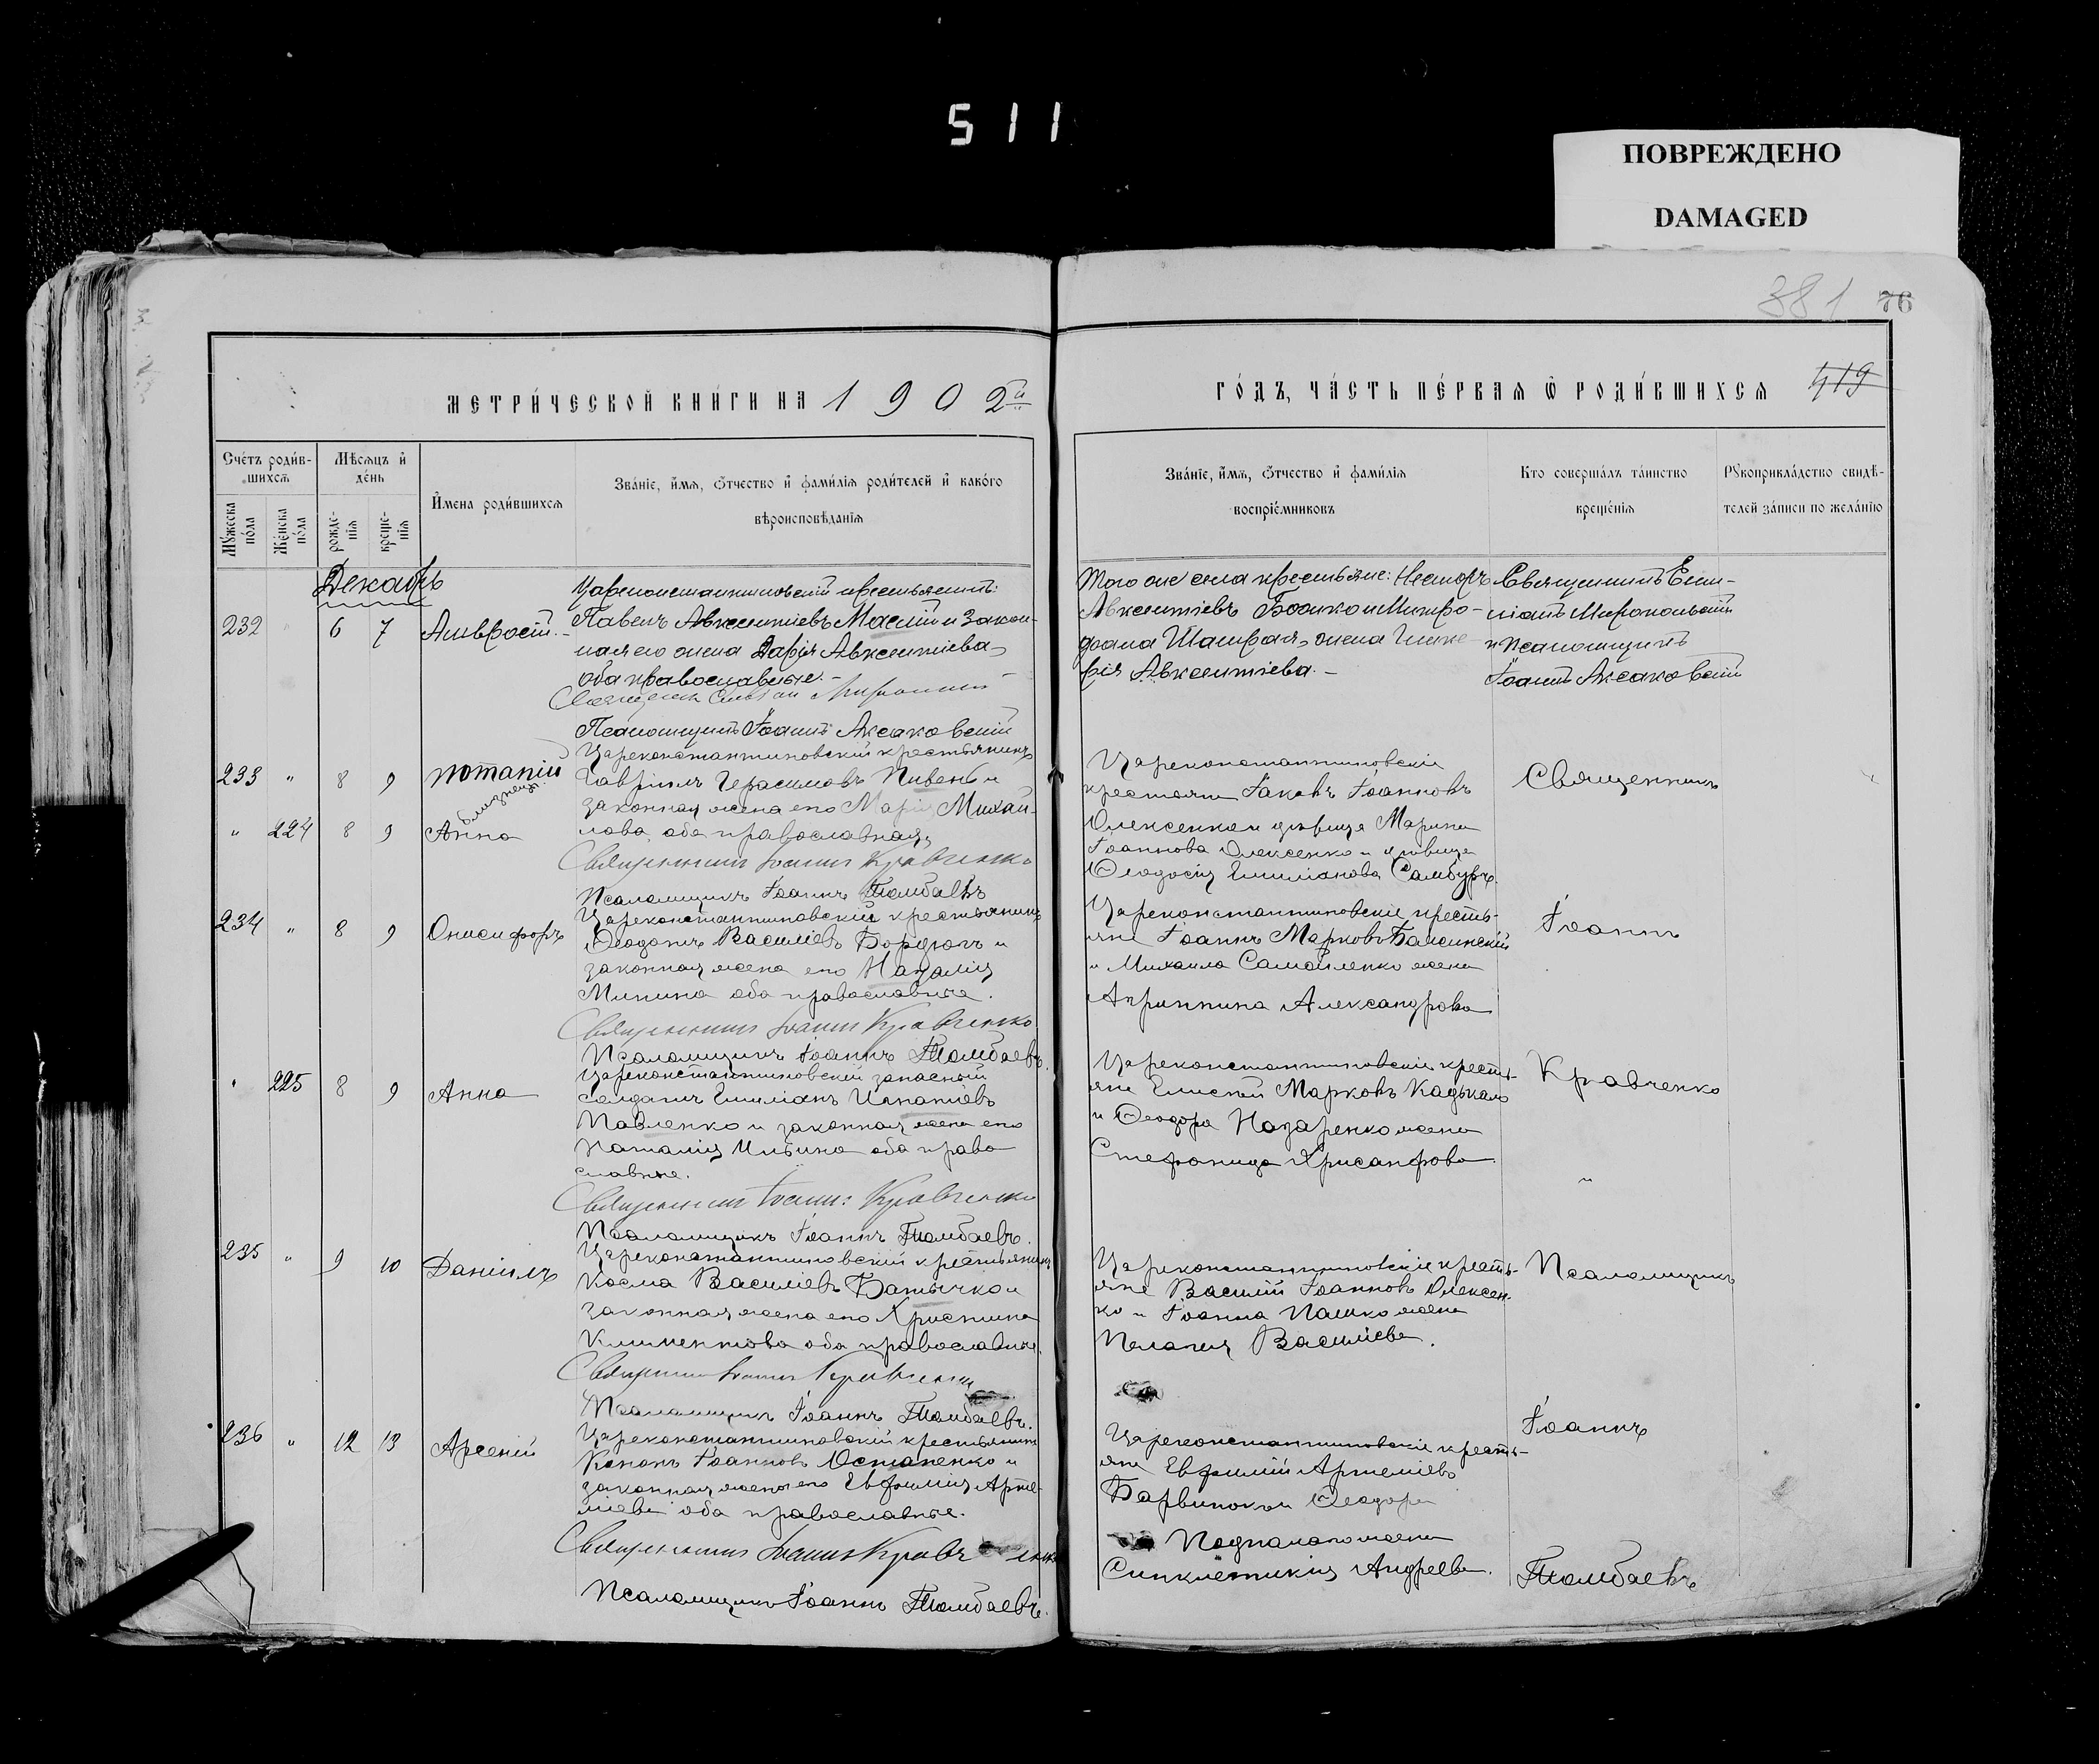 511
ПОВРЕЖДЕНО
DAMAGED
381 76
МЕТРИ́ЧЕСКОЙ КНИ́ГИ НА 1902й
ГО́ДЪ, ЧА́СТЬ ПЕ́РВАѦ Ѽ РОДИ́ВШИХСѦ 419
Сче́тъ роди́в-
шихсѧ
Мꙋ́жеска по́ла
Же́нска по́ла
Мѣ́сѧцъ и҆ де́нь
рожде́-
нїѧ
креще́-
нїѧ
И҆мена роди́вшихсѧ
Зва́нїе, и҆́мѧ, ѻ҆́тчество и҆ фами́лїѧ роди́телей и҆ како́го
вѣроисповѣ́данїѧ
Зва́нїе, и҆́мѧ, ѻ҆́тчество и҆ фами́лїѧ
воспрїе́мниковъ
Кто соверша́лъ та́инство
креще́нїѧ
Рꙋкоприкла́дство свидѣ́-
телей за́писи по жела́нїю
Декабрь
232 " 6 7 Амвросій.-
Цареконстантиновскій крестьянинъ:
Павелъ Авксентіевъ Маслій и закон-
ная его жена Дарія Авксентіева,
оба православные.-
Священник
Псаломщикъ Іоаннъ Аксаковскій
Того же села крестьяне: Несторъ
Авксентіевъ Божко и Митро-
фана Шамрая, жена Глике-
рія Авксентіева.-
Священникъ Еми-
ліанъ
и Псаломщикъ
Іоаннъ Аксаковскій
233 " 8 9 Потапій
близнецы
" 224 8 9 Анна
Цареконстантиновскій крестьянинъ
Гавріилъ Герасимовъ Пивень и
законная жена его Марія Михаи-
лова, оба православная,
Священникъ Іоаннъ Кравченко
Псаломщикъ Іоаннъ Томбаевъ
Цареконстантиновскіе
крестьяне Іаковъ Іоанновъ
Олексенко и дѣвица Марина
Іоаннова Олексенко и дѣвица
Ѳеодосія Емиліанова Самбуръ.
Священникъ
234 " 8 9 Онисифоръ
Цареконстантиновскій крестьянинъ
Ѳеодотъ Василіевъ Бордюгъ и
законная жена его Наталія
Минина оба православные.
Священникъ Іоаннъ Кравченко
Псаломщикъ Іоаннъ Томбаевъ.
Цареконстантиновскіе кресть-
яне Іоаннъ Марковъ Баксинскій
и Михаила Самойленко жена
Агриппина Александрова
Іоаннъ
" 225 8 9 Анна
Цареконстантиновскій запасный
солдатъ Емиліанъ Игнатіевъ
Павленко и законная жена его
Наталія Ильина оба право
славные.
Священникъ Іоаннъ Кравченко
Псаломщикъ Іоаннъ Томбаевъ.
Цареконстантиновскіе кресть-
яне Елисей Марковъ Кадькало
и Ѳеодора Назаренко жена
Стефанида Хрисанфова.
Кравченко
"
235 " 9 10 Даніилъ
Цареконстантиновскій крестьянинъ
Косма Василіевъ Батычко и
законная жена его Христина
Климентова оба православные.
Священникъ Іоаннъ Кравченко
Псаломщикъ Іоаннъ Томбаевъ.
Цареконстантиновскіе кресть-
яне Василій Іоанновъ Олексен-
ко и Іоанна Пашко жена
Пелагея Василіева.
Псаломщикъ
236 " 12 13 Арсеній
Цареконстантиновскій крестьянинъ
Кононъ Іоанновъ Остапенко и
законная жена его Евфимія Арте-
міева оба православные.
Священникъ Іоаннъ Кравченко
Псаломщикъ Іоаннъ Томбаевъ.
Цареконстантиновскіе кресть-
яне Евфимій Артеміевъ
Барвинокъ и Ѳеодора
жена
Синклитикія Андреева.
Іоаннъ
Томбаевъ